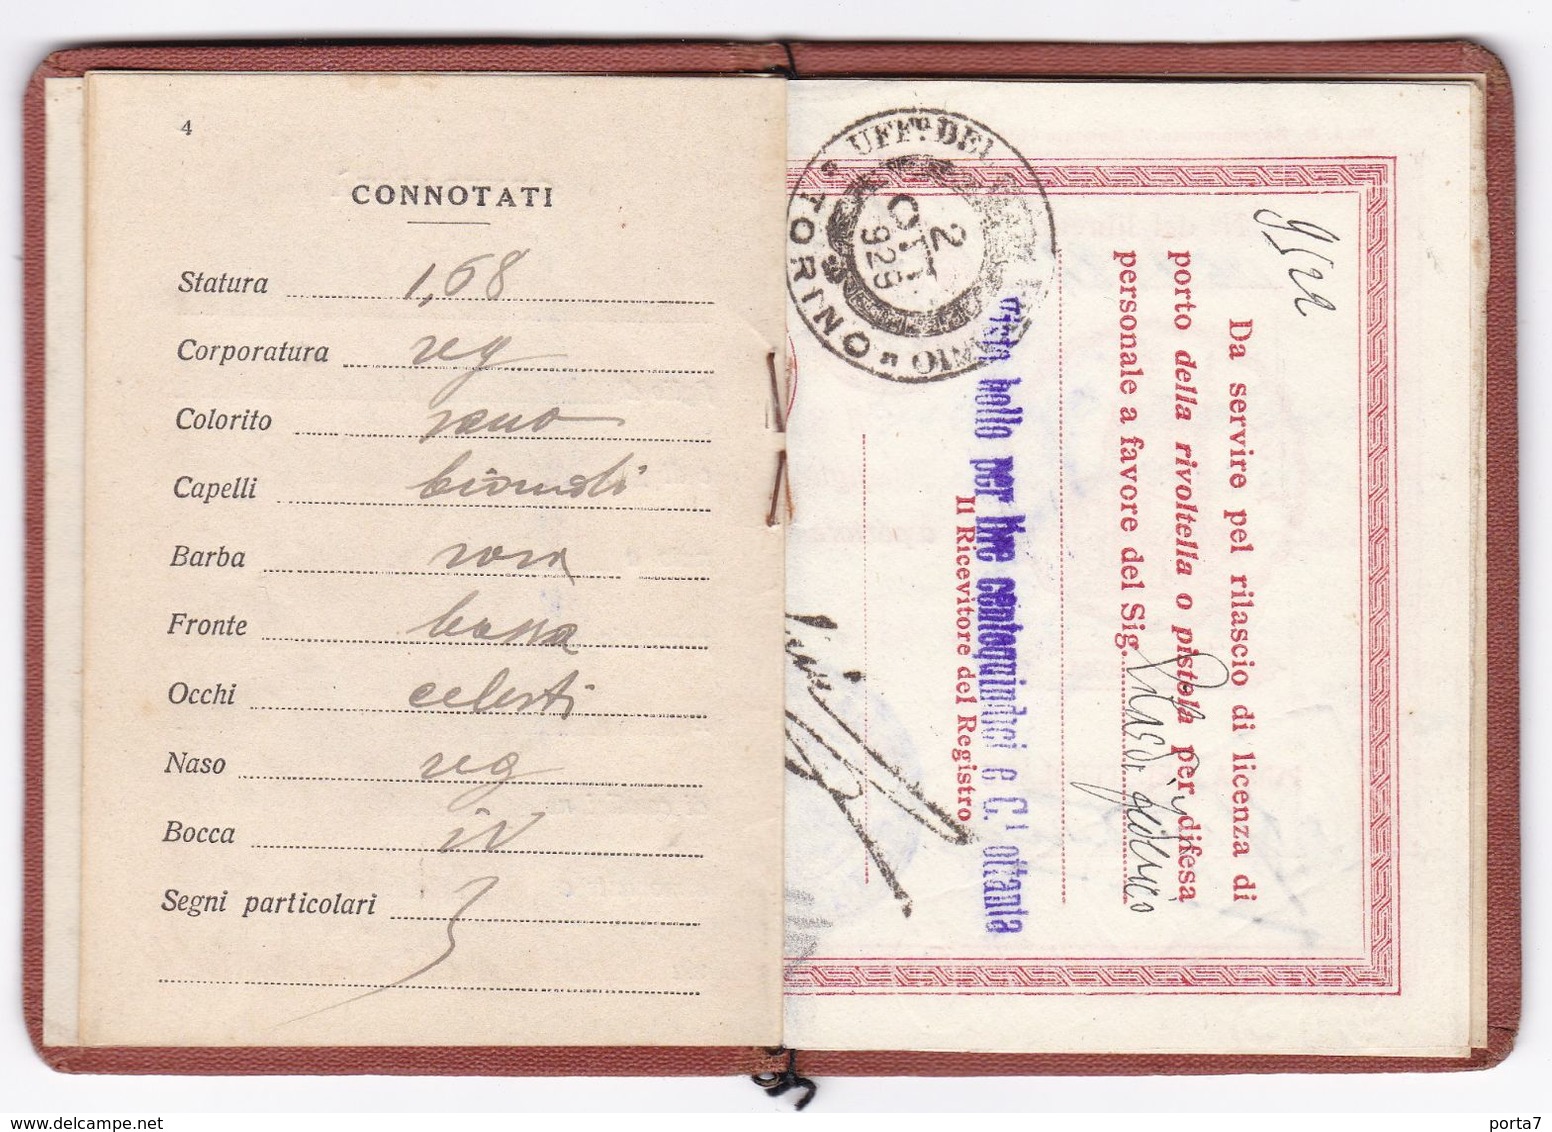 4
CONNOTATI
Statura 1,68
Corporatura reg
Colorito sano
Capelli biondi
Barba rasa
Fronte bassa
Occhi celesti
Naso reg
Bocca id
Segni particolari
9522
Da servire pel rilascio di licenza di
porto della rivoltella o pistola per difesa
personale a favore del Sig.
Visto bollo per lire centoquindici e C.i ottanta
Il Ricevitore del Registro
UFF.º DEL
TORINO
2
OTT
929
delcampe.net
porta7